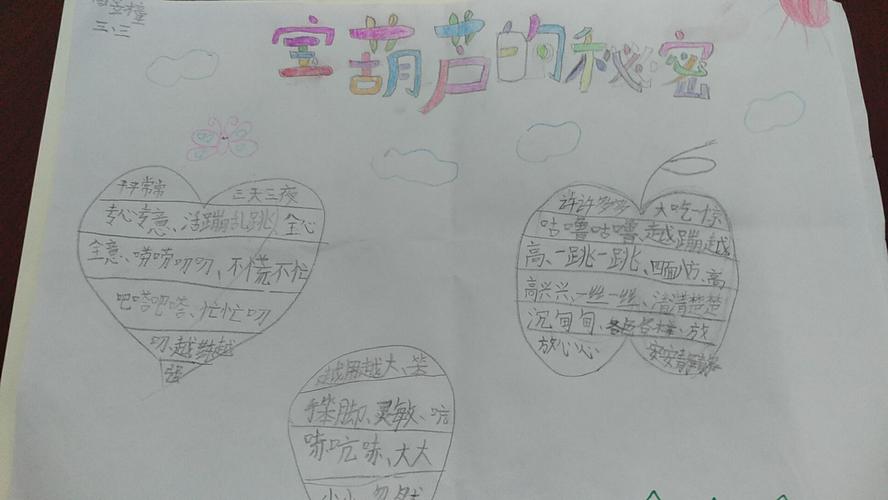 三、三
宝葫芦的秘密
平平常常 三天三夜
专心专意、活蹦乱跳 全心
全意、唠唠叨叨、不慌不忙
吧嗒吧嗒、忙忙叨
叨、越
许许多多 大吃一惊
咕噜咕噜 越蹦越
高、一跳一跳、四面八方、高
高兴兴、一丝一丝、清清楚楚
沉甸甸、各色各样、放
放心心 安安静静
越用越大、笨
手笨脚、灵敏、吭
哧吭哧、大大
小小、忽然